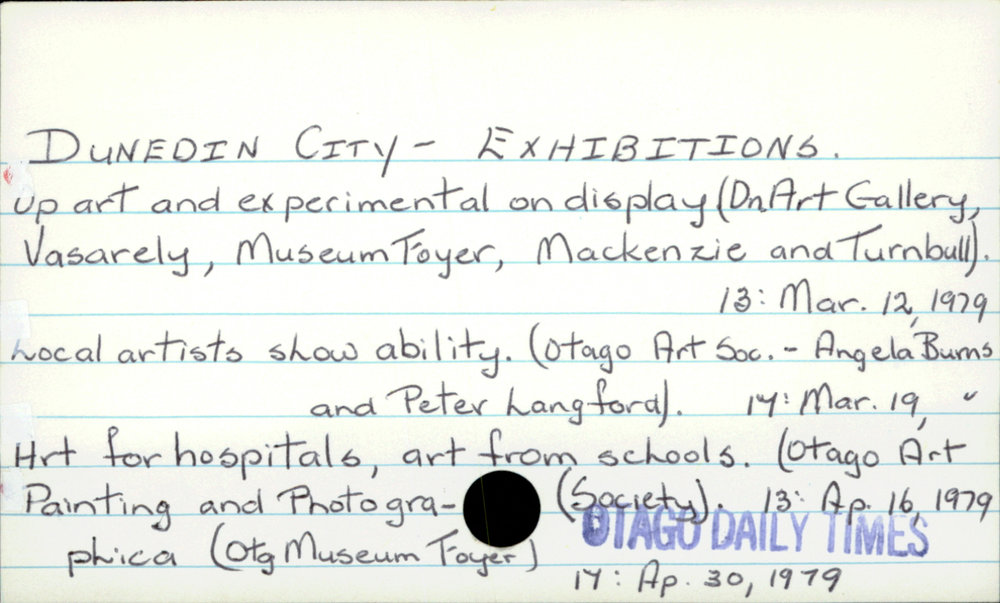 DUNEDIN CITY - EXHIBITIONS.
Op art and experimental on display (Dn Art Gallery,
Vasarely, Museum Foyer, Mackenzie and Turnbull).
13: Mar. 12, 1979
Local artists show ability. (Otago Art Soc. - Angela Burns
and Peter Langford). 14: Mar. 19, "
Art for hospitals, art from schools. (Otago Art
Painting and Photogra- (Society). 13: Ap. 16, 1979
phica (Otg Museum Foyer)
OTAGO DAILY TIMES
14: Ap. 30, 1979